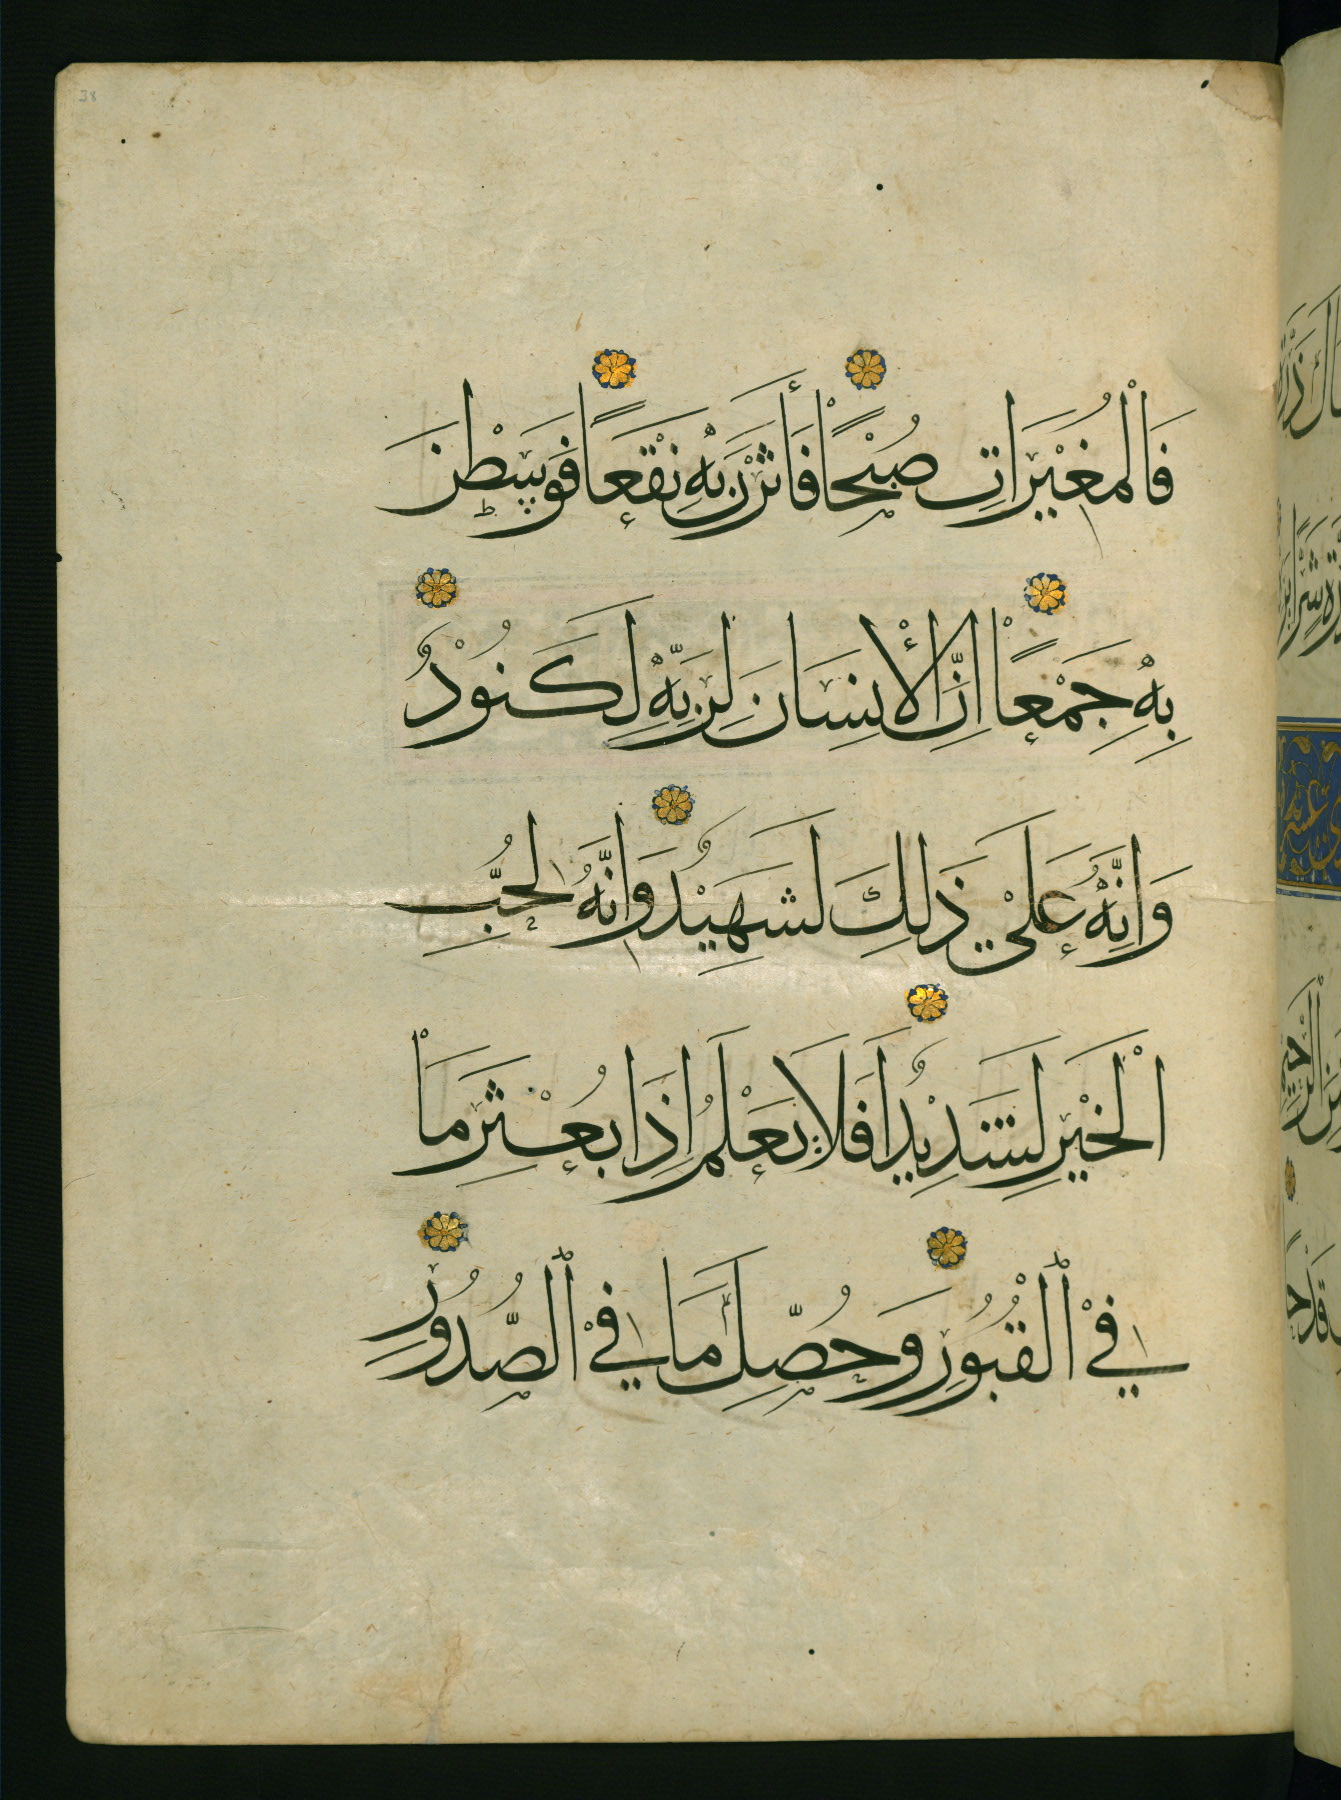 38
فَالْمُغِيْرَاتِ صُبْحًا فَأَثَرْنَ بِهِ نَقْعًا فَوَسَطْنَ
بِهِ جَمْعًا اِنَّ الْأِنسَانَ لِرَبِّهِ لَكَنُوْدٌ
وَاِنَّهُ عَلَىْ ذَلِكَ لَشَهِيْدٌ وَاِنَّهُ لِحُبِّ
الْخَيْرِ لَشَدِيْدٌ اَفَلَا يَعْلَمُ اِذَا بُعْثِرَ مَا
فِيْ الْقُبُوْرِ وَحُصِّلَ مَا فِيْ الصُّدُوْرِ